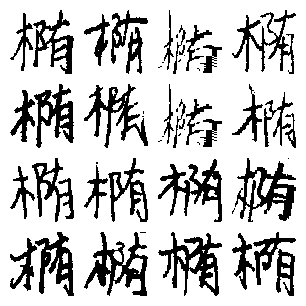 椭椭椭椭
椭椭椭椭
椭椭椭椭
椭椭椭椭